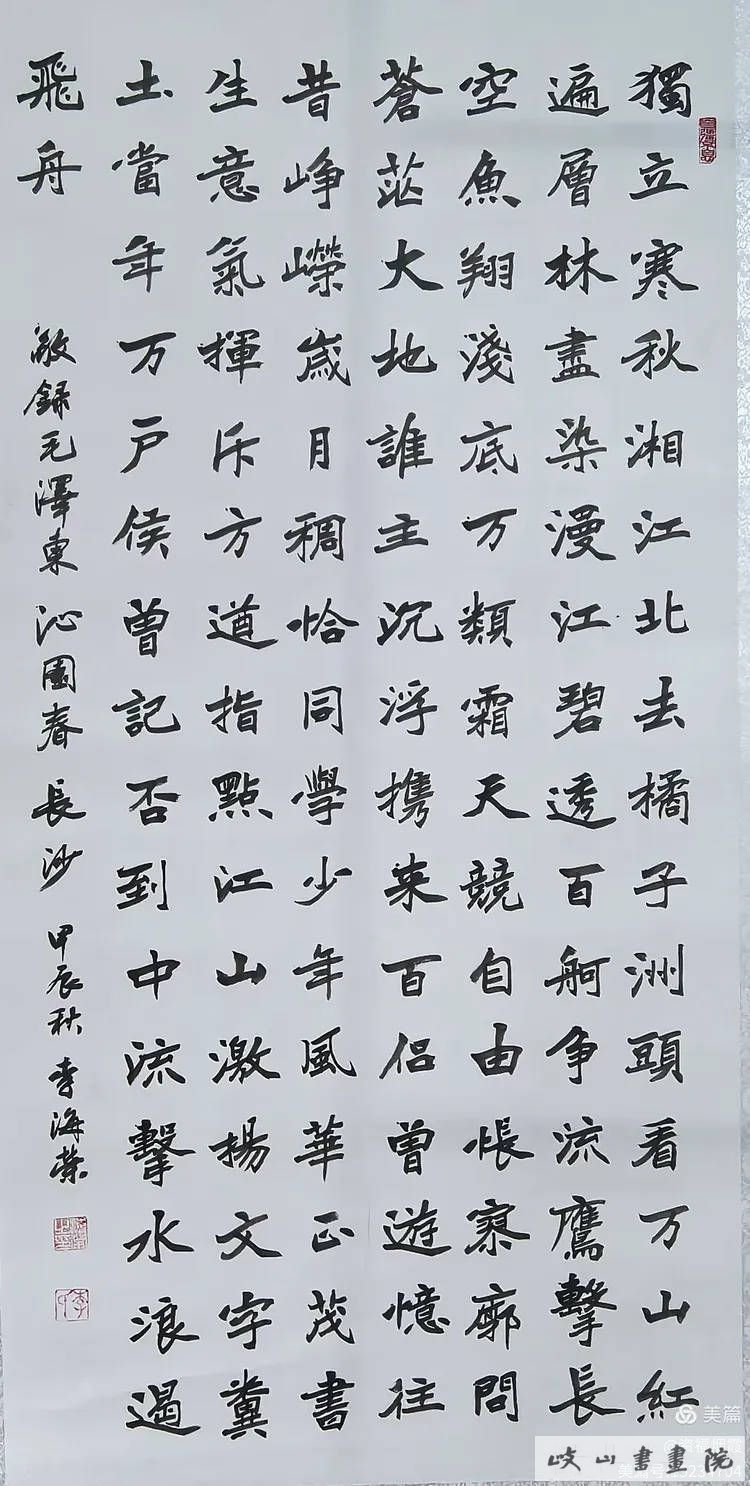 獨立寒秋湘江北去橘子洲頭看万山紅
遍層林盡染漫江碧透百舸争流鷹擊長
空魚翔淺底万類霜天競自由悵寥廓問
蒼茫大地誰主沉浮携来百侣曾遊憶往
昔峥嶸歲月稠恰同學少年風華正茂書
生意氣揮斥方遒指點江山激揚文字糞
土當年万户侯曾記否到中流擊水浪遏
飛舟
敬録毛澤東 沁園春 長沙 甲辰秋 李海榮
美篇
岐山書畫院